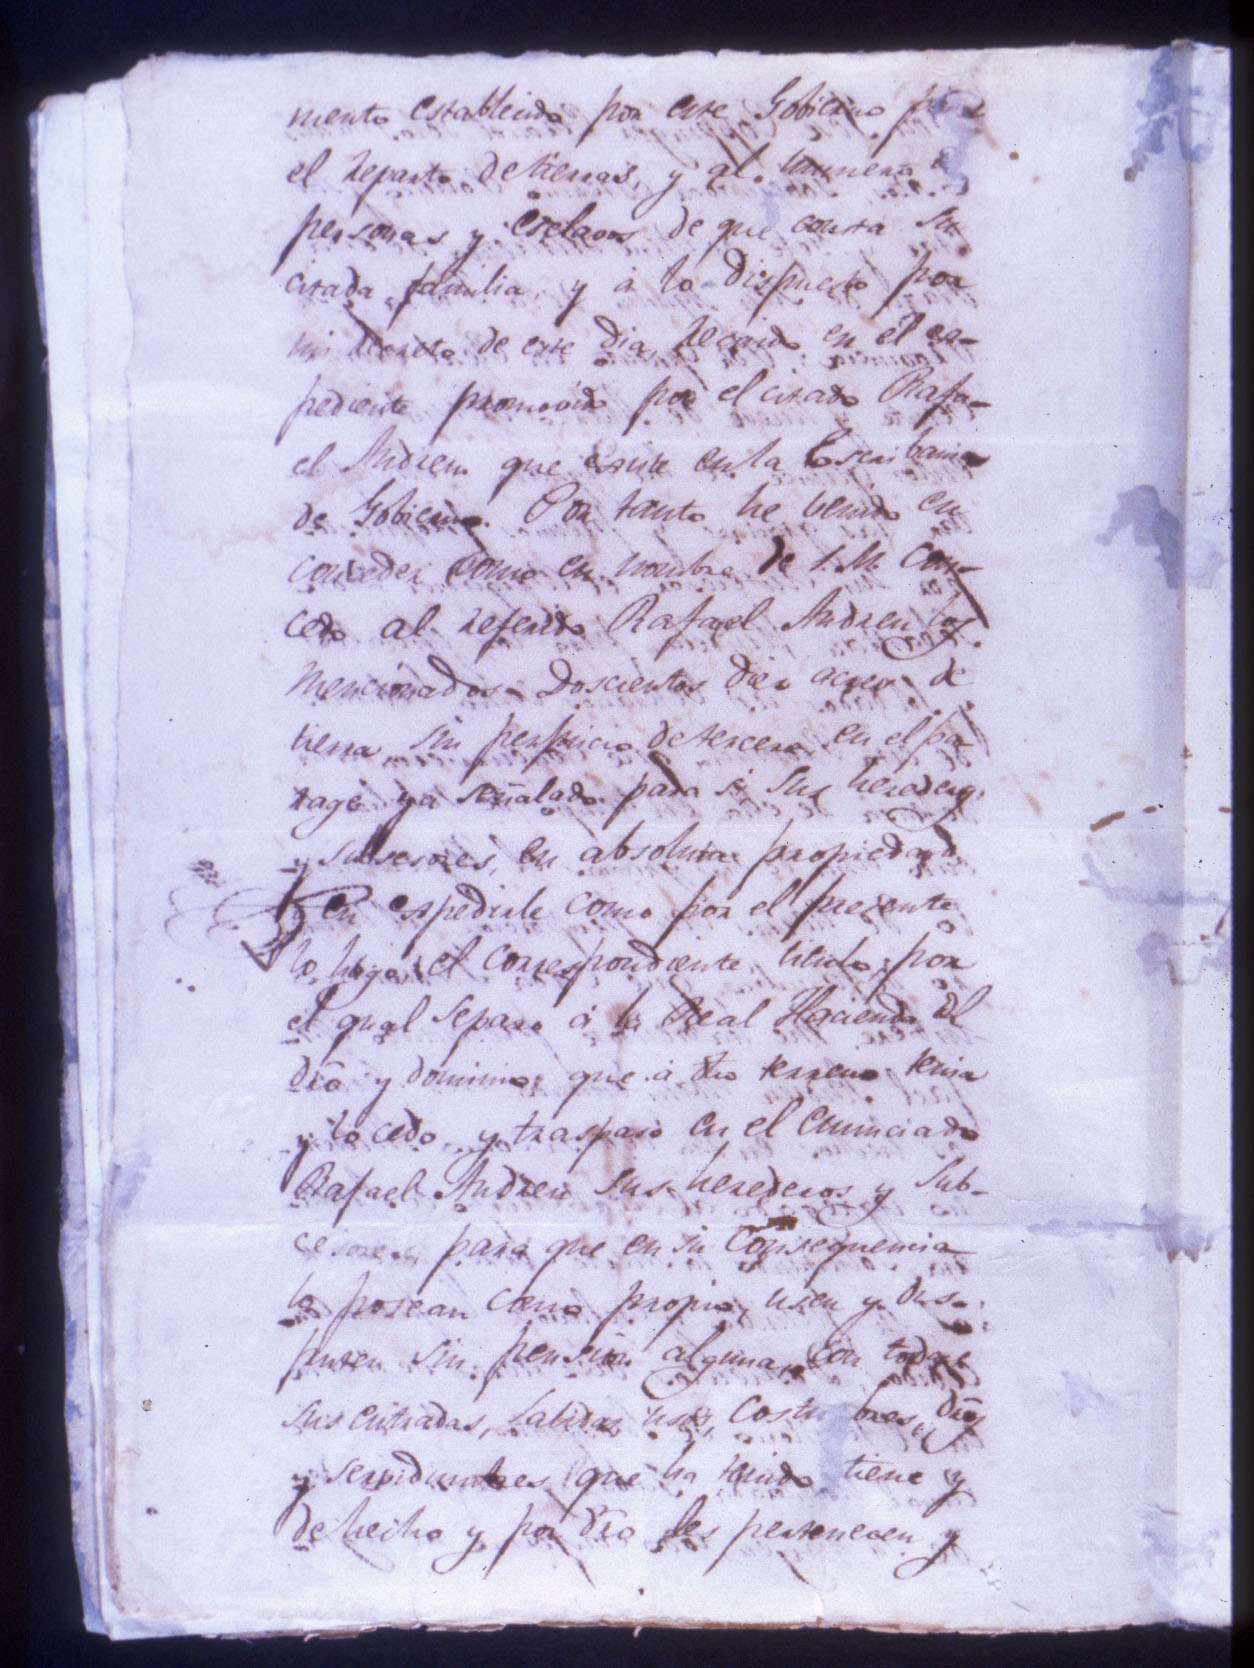 mento establecido por este Gobierno para
el reparto de tierras, y al numero de
personas y esclavos de que consta su
citada familia, y á lo dispuesto por
mi decreto de este dia, recaido en el es-
pediente promovido por el citado Rafa-
el Andreu que existe en la Escribania
de Gobierno. Por tanto he venido en
conceder como en nombre de S.M. con-
cedo al referido Rafael Andreu los
mencionados Doscientos diez acres de
tierra sin perjuicio de tercero en el pa
rage ya señalado para sí sus herederos
y subsesores, en absoluta propiedad
y en espedirle como por el presente
lo hago el correspondiente titulo por
el qual separo á la Real Hacienda del
dro y dominio que á dho terreno tenia
y lo cedo y traspaso en el enunciado
Rafael Andreu sus herederos y sub-
cesores para que en su consequencia
lo posean como propio, usen y dis-
fruten sin pension alguna, con todas
sus entradas, salidas, usos, costumbres, dros
y servidumbres que ha tenido tiene y
de hecho y por dro les pertenecen y